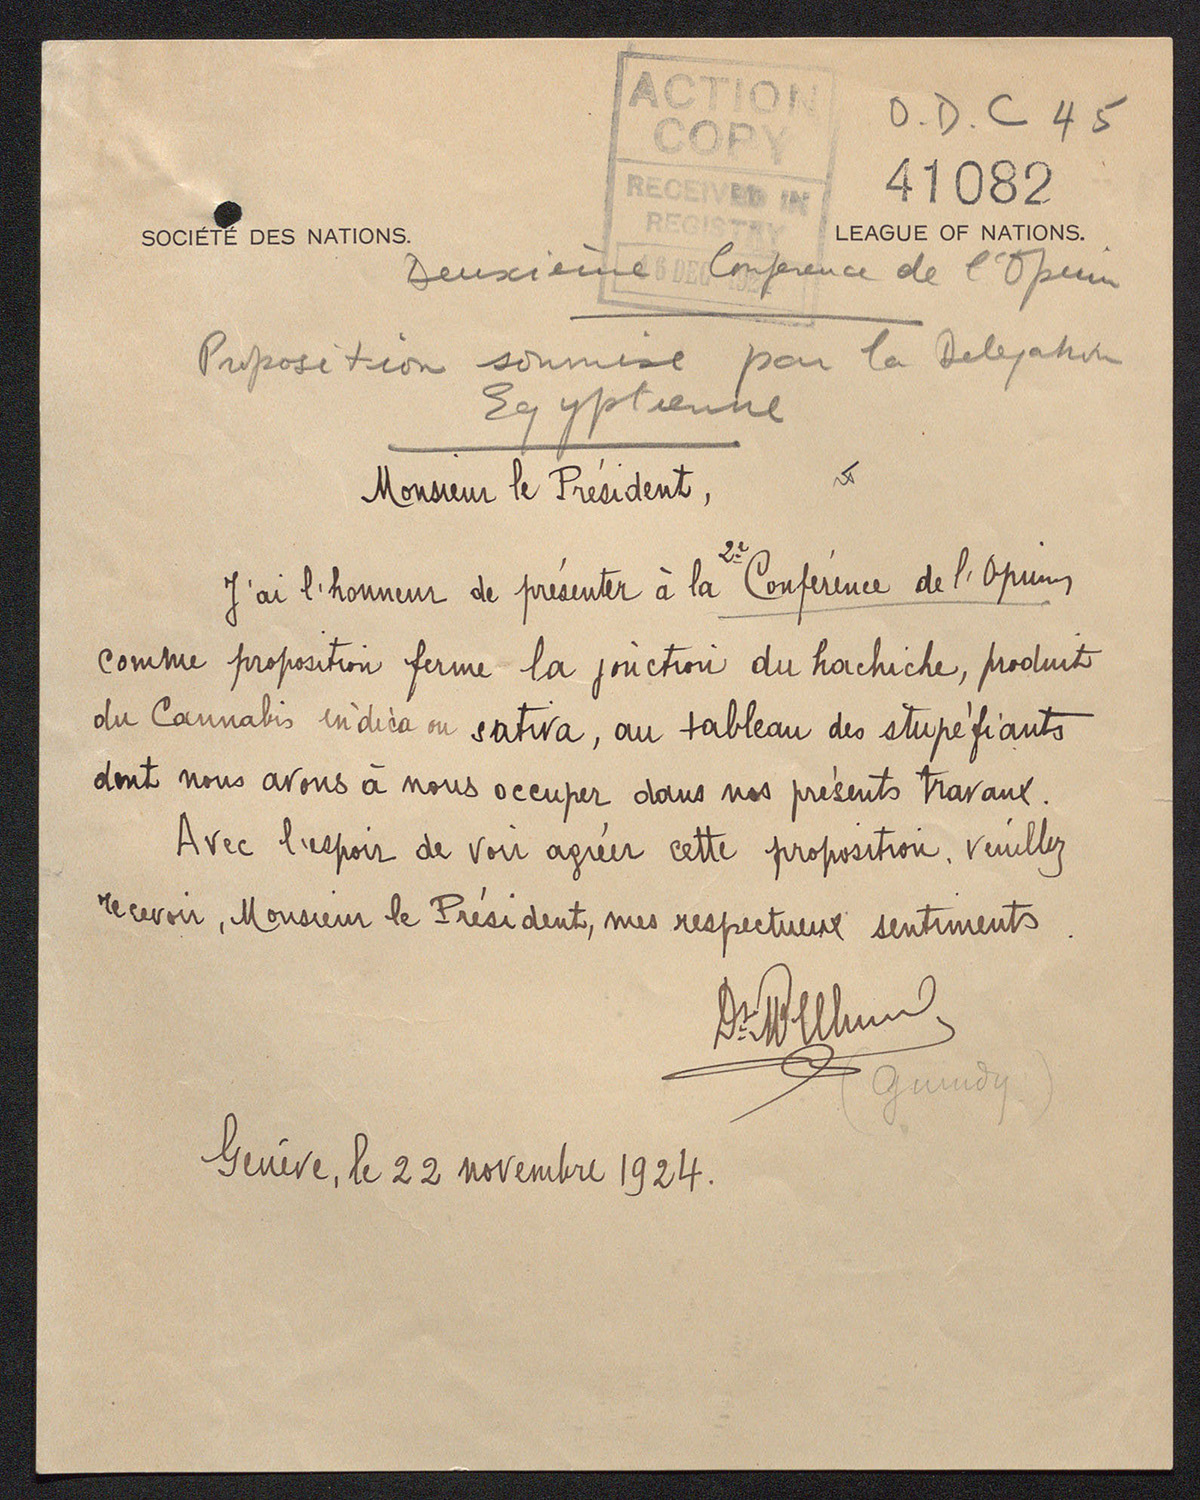 ACTION
COPY
O.D.C 45
RECEIVED IN
REGISTRY
41082
SOCIÉTÉ DES NATIONS.
LEAGUE OF NATIONS.
16 DEC 1924
Deuxième Conference de l'Opium
Proposition soumise par la Delegation
Egyptienne
Monsieur le Président,
J'ai l'honneur de présenter à la 2e Conférence de l'Opium
comme proposition ferme la jonction du hachiche, produit
du Cannabis indica ou sativa, au tableau des stupéfiants
dont nous avons à nous occuper dans nos présents travaux.
Avec l'espoir de voir agréer cette proposition, veuillez
recevoir, Monsieur le Président, mes respectueux sentiments.
Dr
(Guindy)
Genève, le 22 novembre 1924.